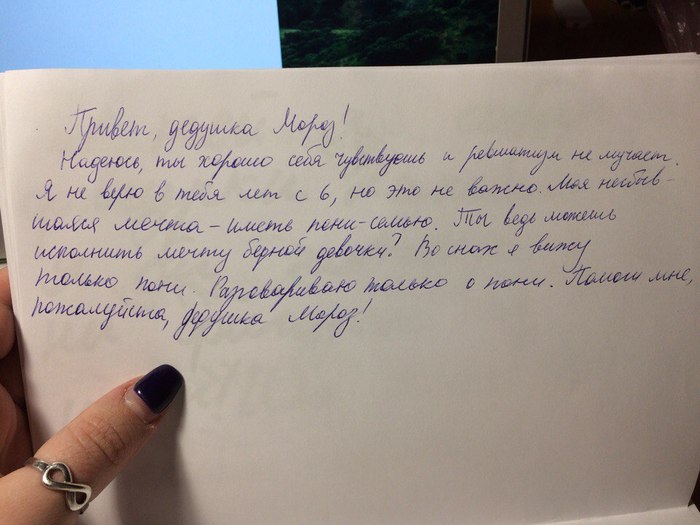 Привет, дедушка Мороз!
Надеюсь, ты хорошо себя чувствуешь и ревматизм не мучает.
Я не верю в тебя лет с 6, но это не важно. Моя несбыв-
шаяся мечта - иметь пони-семью. Ты ведь можешь
исполнить мечту бедной девочки? Во снах я вижу
только пони. Разговариваю только о пони. Помоги мне,
пожалуйста, дедушка Мороз!